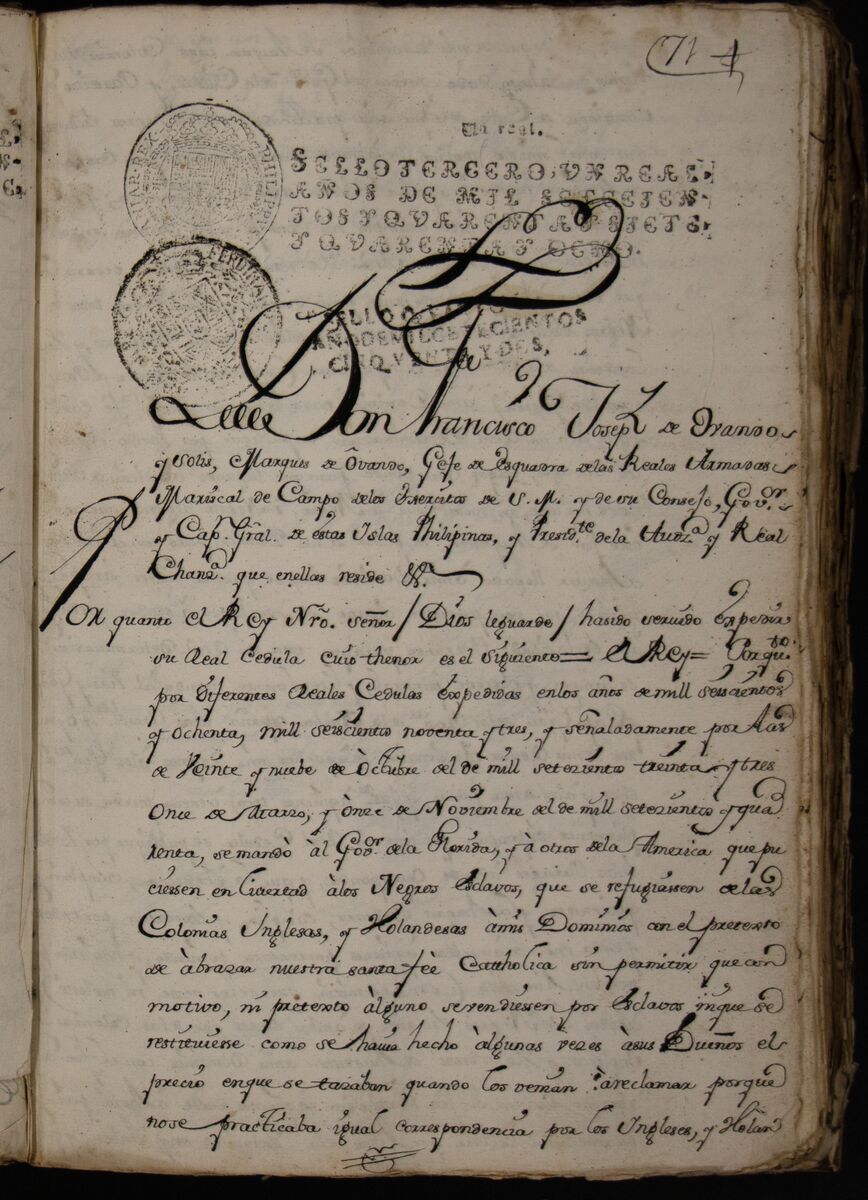 71
Un real.
SELLO TERCERO, VN REAL,
AÑOS DE MIL SETECIEN-
TOS Y QVARENTA Y SIETE,
Y QVARENTA Y OCHO.
PHILIPP
REX
FERDINA
SELLO
AÑO DE MIL SETECIENTOS
CINQVENTA Y DOS,
Don Francisco Joseph de Ovando
y Solis, Marques de Ôvando, Gefe de Esquadra de las Reales Armadas
Mariscal de Campo delos Exercitos de S. M. y de su Consejo, Govor.
y Capn. Gral. de éstas Islas Philipinas, y Presidte. dela Audza. y Real
Chanza. que enellas reside &a.
Por quanto el Rey Nro. señor / Dios leguarde / hasido servido Expedir
su Real Cedula cuio thenor es el siguiente = el Rey = Por quto.
por Diferentes Reales Cedulas Expedidas enlos años de mill seiscientos
y ochenta, mill seiscientos noventa ytres, y señaladamente por las
de Veinte y nuebe de Octubre del de mill setezientos treinta y tres
Once de Marzo, y Onze de Noviembre del de mill setezientos y qua
renta, se mandò àl Govor. dela Florida, y à otros dela America que pu
ciessen en livertad àlos Negros Esclavos, que se refugiassen delas
Colonias Inglesas, y Holandesas àmis Dominios con el pretexto
de àbrazar nuestra santa feè Catholica sin permitir que con
motivo, ni pretexto àlguno sevendiessen por Esclavos nique se
restituiesse como se havia hecho àlgunas vezes àsus Dueños el
precio enque se tazaban quando los venian àreclamar porque
nose practicaba igual correspondencia por los Ingleses, y Holan